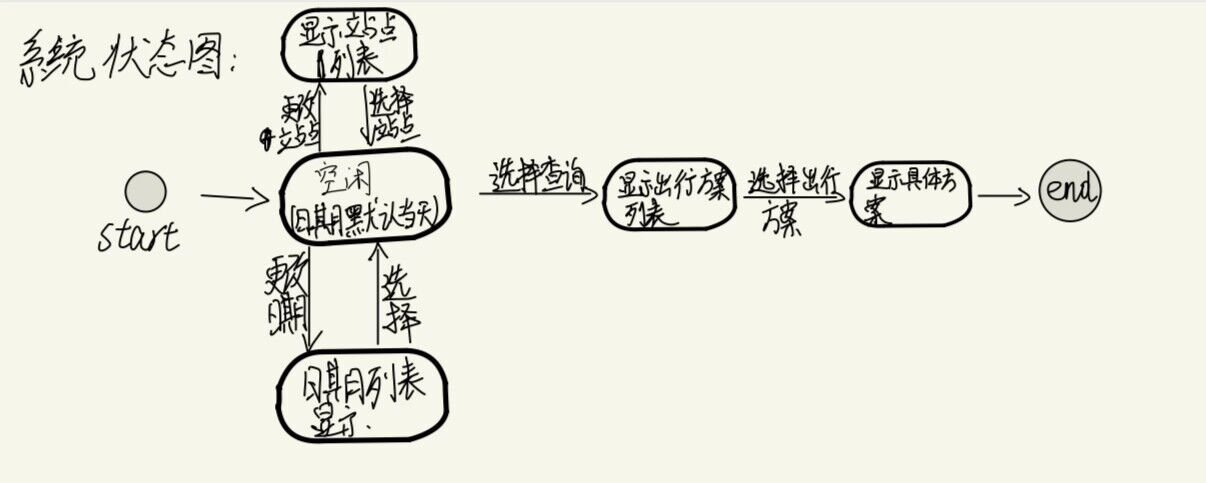 系统状态图:
显示站点
列表
更改
站点
选择
站点
start
空闲
(日期默认当天)
选择查询
显示出行方案
列表
选择出行
方案
显示具体方
案
end
更改
日期
选
择
日期列表
显示.